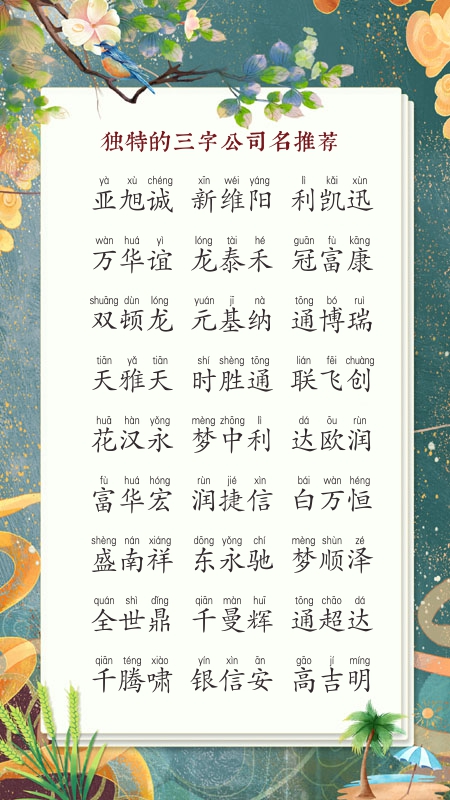 独特的三字公司名推荐
yà xù chéng xīn wéi yáng lì kǎi xùn
亚旭诚 新维阳 利凯迅
wàn huá yì lóng tài hé guān fù kāng
万华谊 龙泰禾 冠富康
shuāng dùn lóng yuán jī nà tōng bó ruì
双顿龙 元基纳 通博瑞
tiān yǎ tiān shí shèng tōng lián fēi chuàng
天雅天 时胜通 联飞创
huā hàn yǒng mèng zhōng lì dá ōu rùn
花汉永 梦中利 达欧润
fù huá hóng rùn jié xìn bái wàn héng
富华宏 润捷信 白万恒
shèng nán xiáng dōng yǒng chí mèng shùn zé
盛南祥 东永驰 梦顺泽
quán shì dǐng qiān màn huī tōng chāo dá
全世鼎 千曼辉 通超达
qiān téng xiào yín xìn ān gāo jí míng
千腾啸 银信安 高吉明